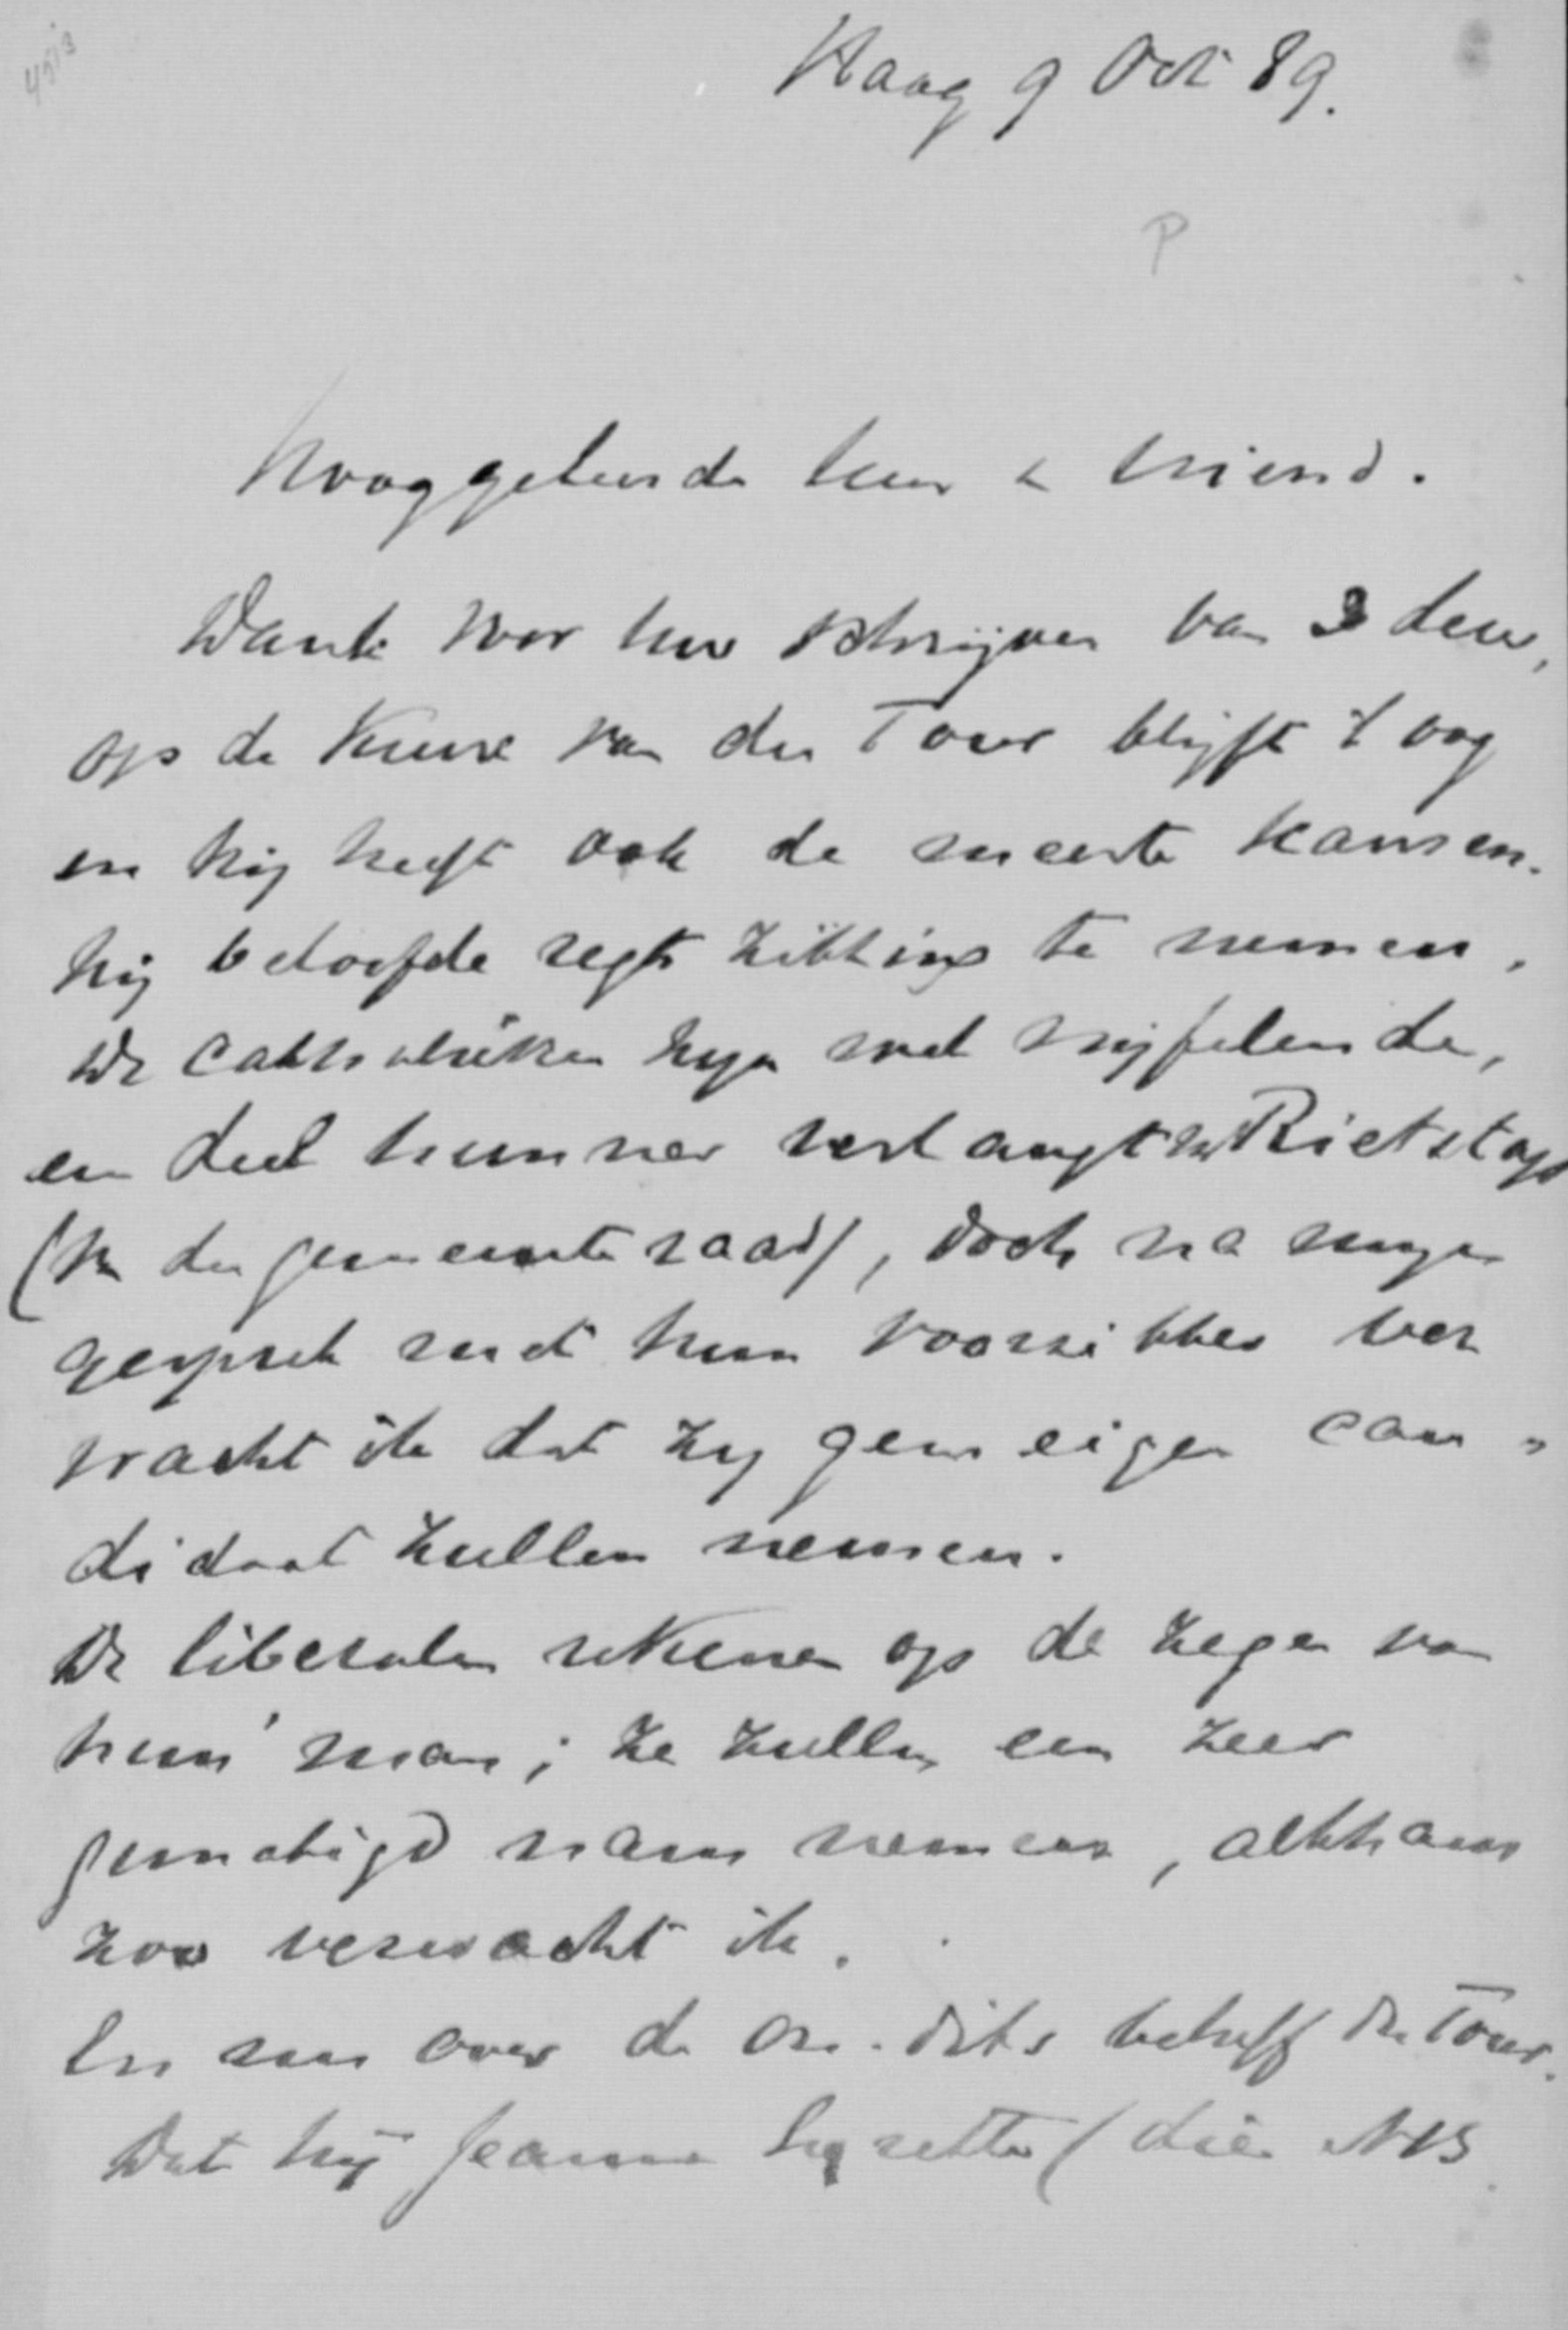 4513
Haag 9 Oct 89.
P
Hooggeleerde heer & vriend.
Dank voor uw schrijven van 3 dezer,
op de keuze van der Tour blijft 't oog
en hij heeft ook de meeste kansen.
hij beloofde regts zitting te nemen,
De Catholieken zijn wel wijfelende,
en deel hunner verlangt Rietstap
(in den gemeenteraad), doch na mijn
gesprek met hun voorzitter ver
wacht ik dat zij geen eigen can-
didaat zullen nemen.
De liberalen rekenen op de zege van
hun man; ze zullen een zeer
gematigd man nemen, althans
zoo verwacht ik.
En nu over de on-dits betreff. dr Tour.
Dat hij Jeanne Lorette (die NB